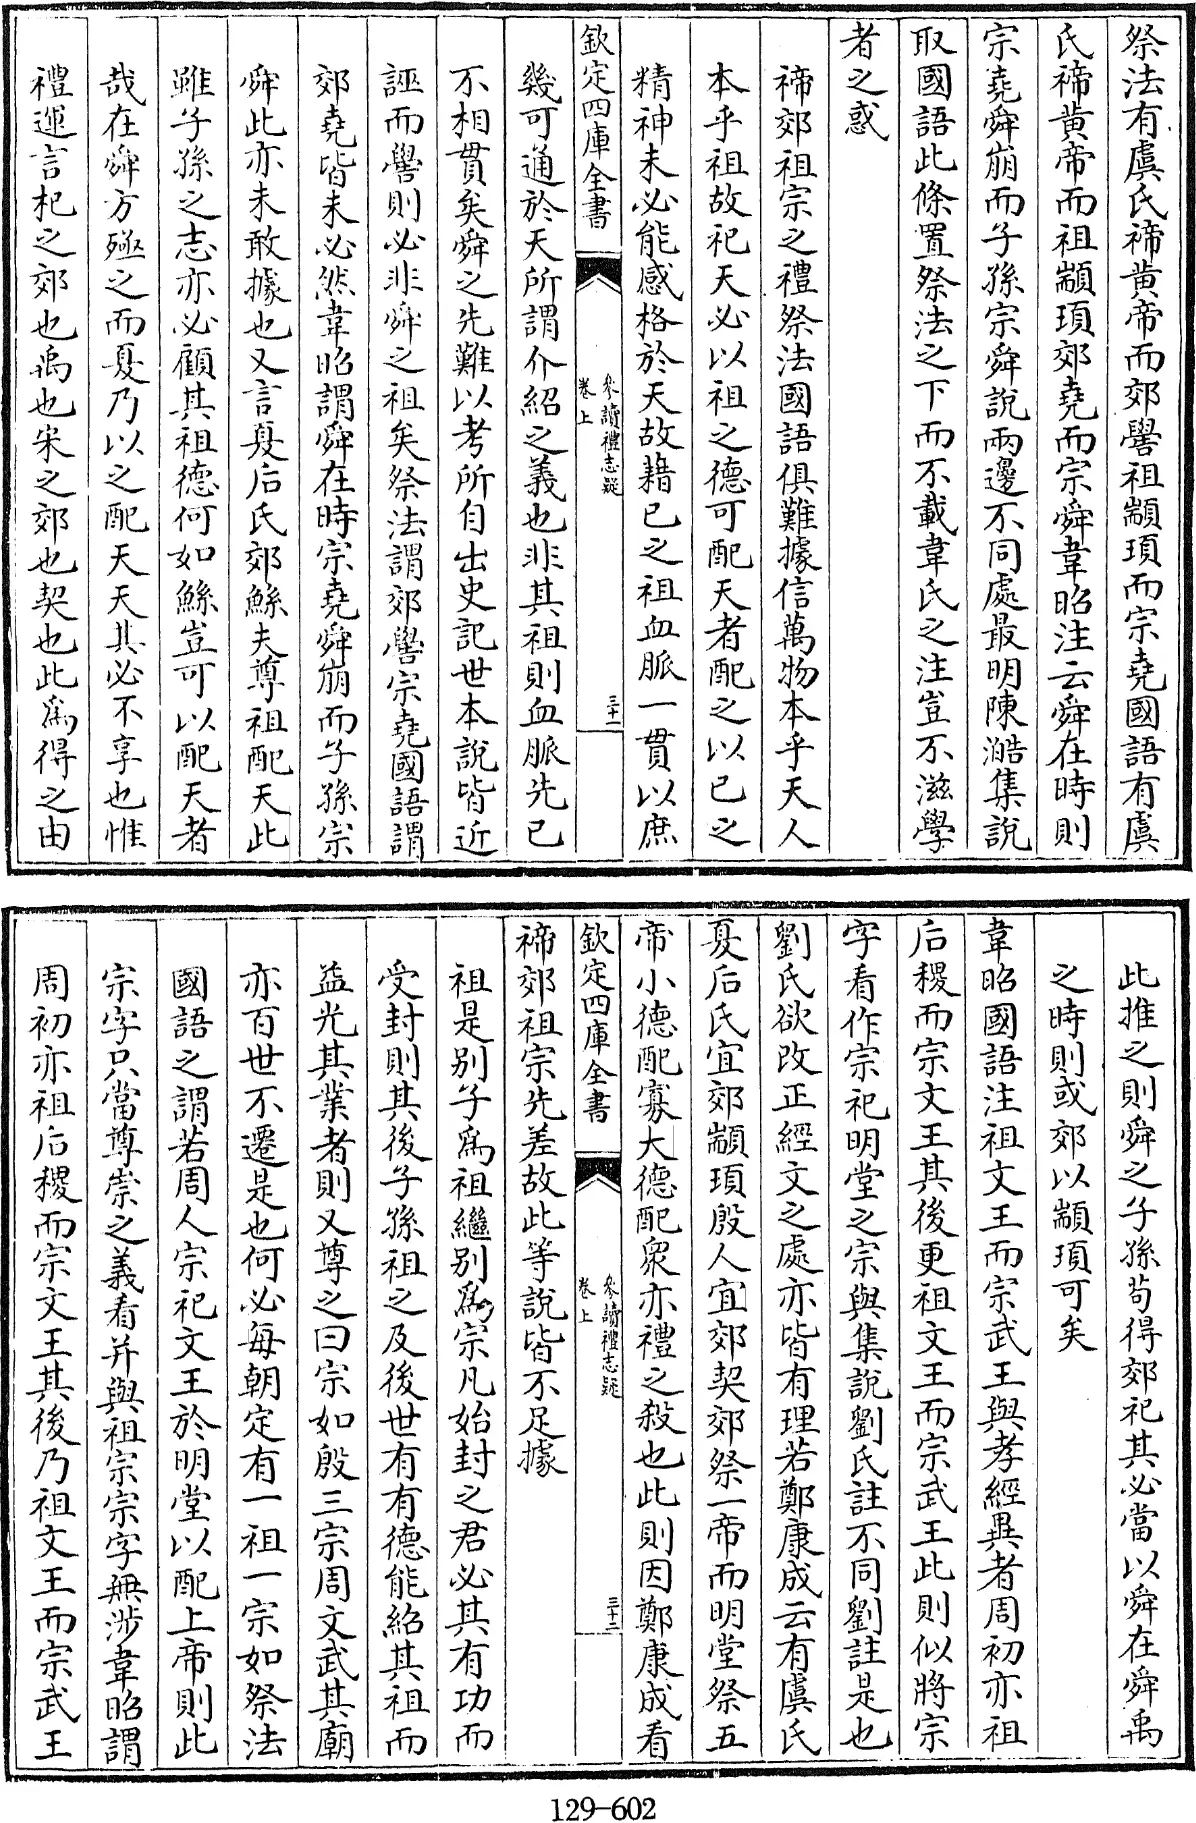 祭法有虞氏禘黄帝而郊嚳祖顓頊而宗堯國語有虞
氏禘黄帝而祖顓頊郊堯而宗舜韋昭注云舜在時則
宗堯舜崩而子孫宗舜說兩邊不同處最明陳澔集說
取國語此條置祭法之下而不載韋氏之注豈不滋學
者之惑
禘郊祖宗之禮祭法國語俱難據信萬物本乎天人
本乎祖故祀天必以祖之德可配天者配之以已之
精神未必能感格於天故藉已之祖血脈一貫以庶
欽定四庫全書
參讀禮志疑
卷上
三十一
幾可通於天所謂介紹之義也非其祖則血脈先已
不相貫矣舜之先難以考所自出史記世本說皆近
誣而嚳則必非舜之祖矣祭法謂郊嚳宗堯國語謂
郊堯皆未必然韋昭謂舜在時宗堯舜崩而子孫宗
舜此亦未敢據也又言夏后氏郊鯀夫尊祖配天此
雖子孫之志亦必顧其祖德何如鯀豈可以配天者
哉在舜方殛之而夏乃以之配天天其必不享也惟
禮運言杞之郊也禹也宋之郊也契也此為得之由
此推之則舜之子孫苟得郊祀其必當以舜在舜禹
之時則或郊以顓頊可矣
韋昭國語注祖文王而宗武王與孝經異者周初亦祖
后稷而宗文王其後更祖文王而宗武王此則似將宗
字看作宗祀明堂之宗與集說劉氏註不同劉註是也
劉氏欲改正經文之處亦皆有理若鄭康成云有虞氏
夏后氏宜郊顓頊殷人宜郊契郊祭一帝而明堂祭五
帝小德配寡大德配衆亦禮之殺也此則因鄭康成看
欽定四庫全書
參讀禮志疑
卷上
三十二
禘郊祖宗先差故此等說皆不足據
祖是别子為祖繼别為宗凡始封之君必其有功而
受封則其後子孫祖之及後世有有德能紹其祖而
益光其業者則又尊之曰宗如殷三宗周文武其廟
亦百世不遷是也何必每朝定有一祖一宗如祭法
國語之謂若周人宗祀文王於明堂以配上帝則此
宗字只當尊崇之義看并與祖宗宗字無涉韋昭謂
周初亦祖后稷而宗文王其後乃祖文王而宗武王
129-602